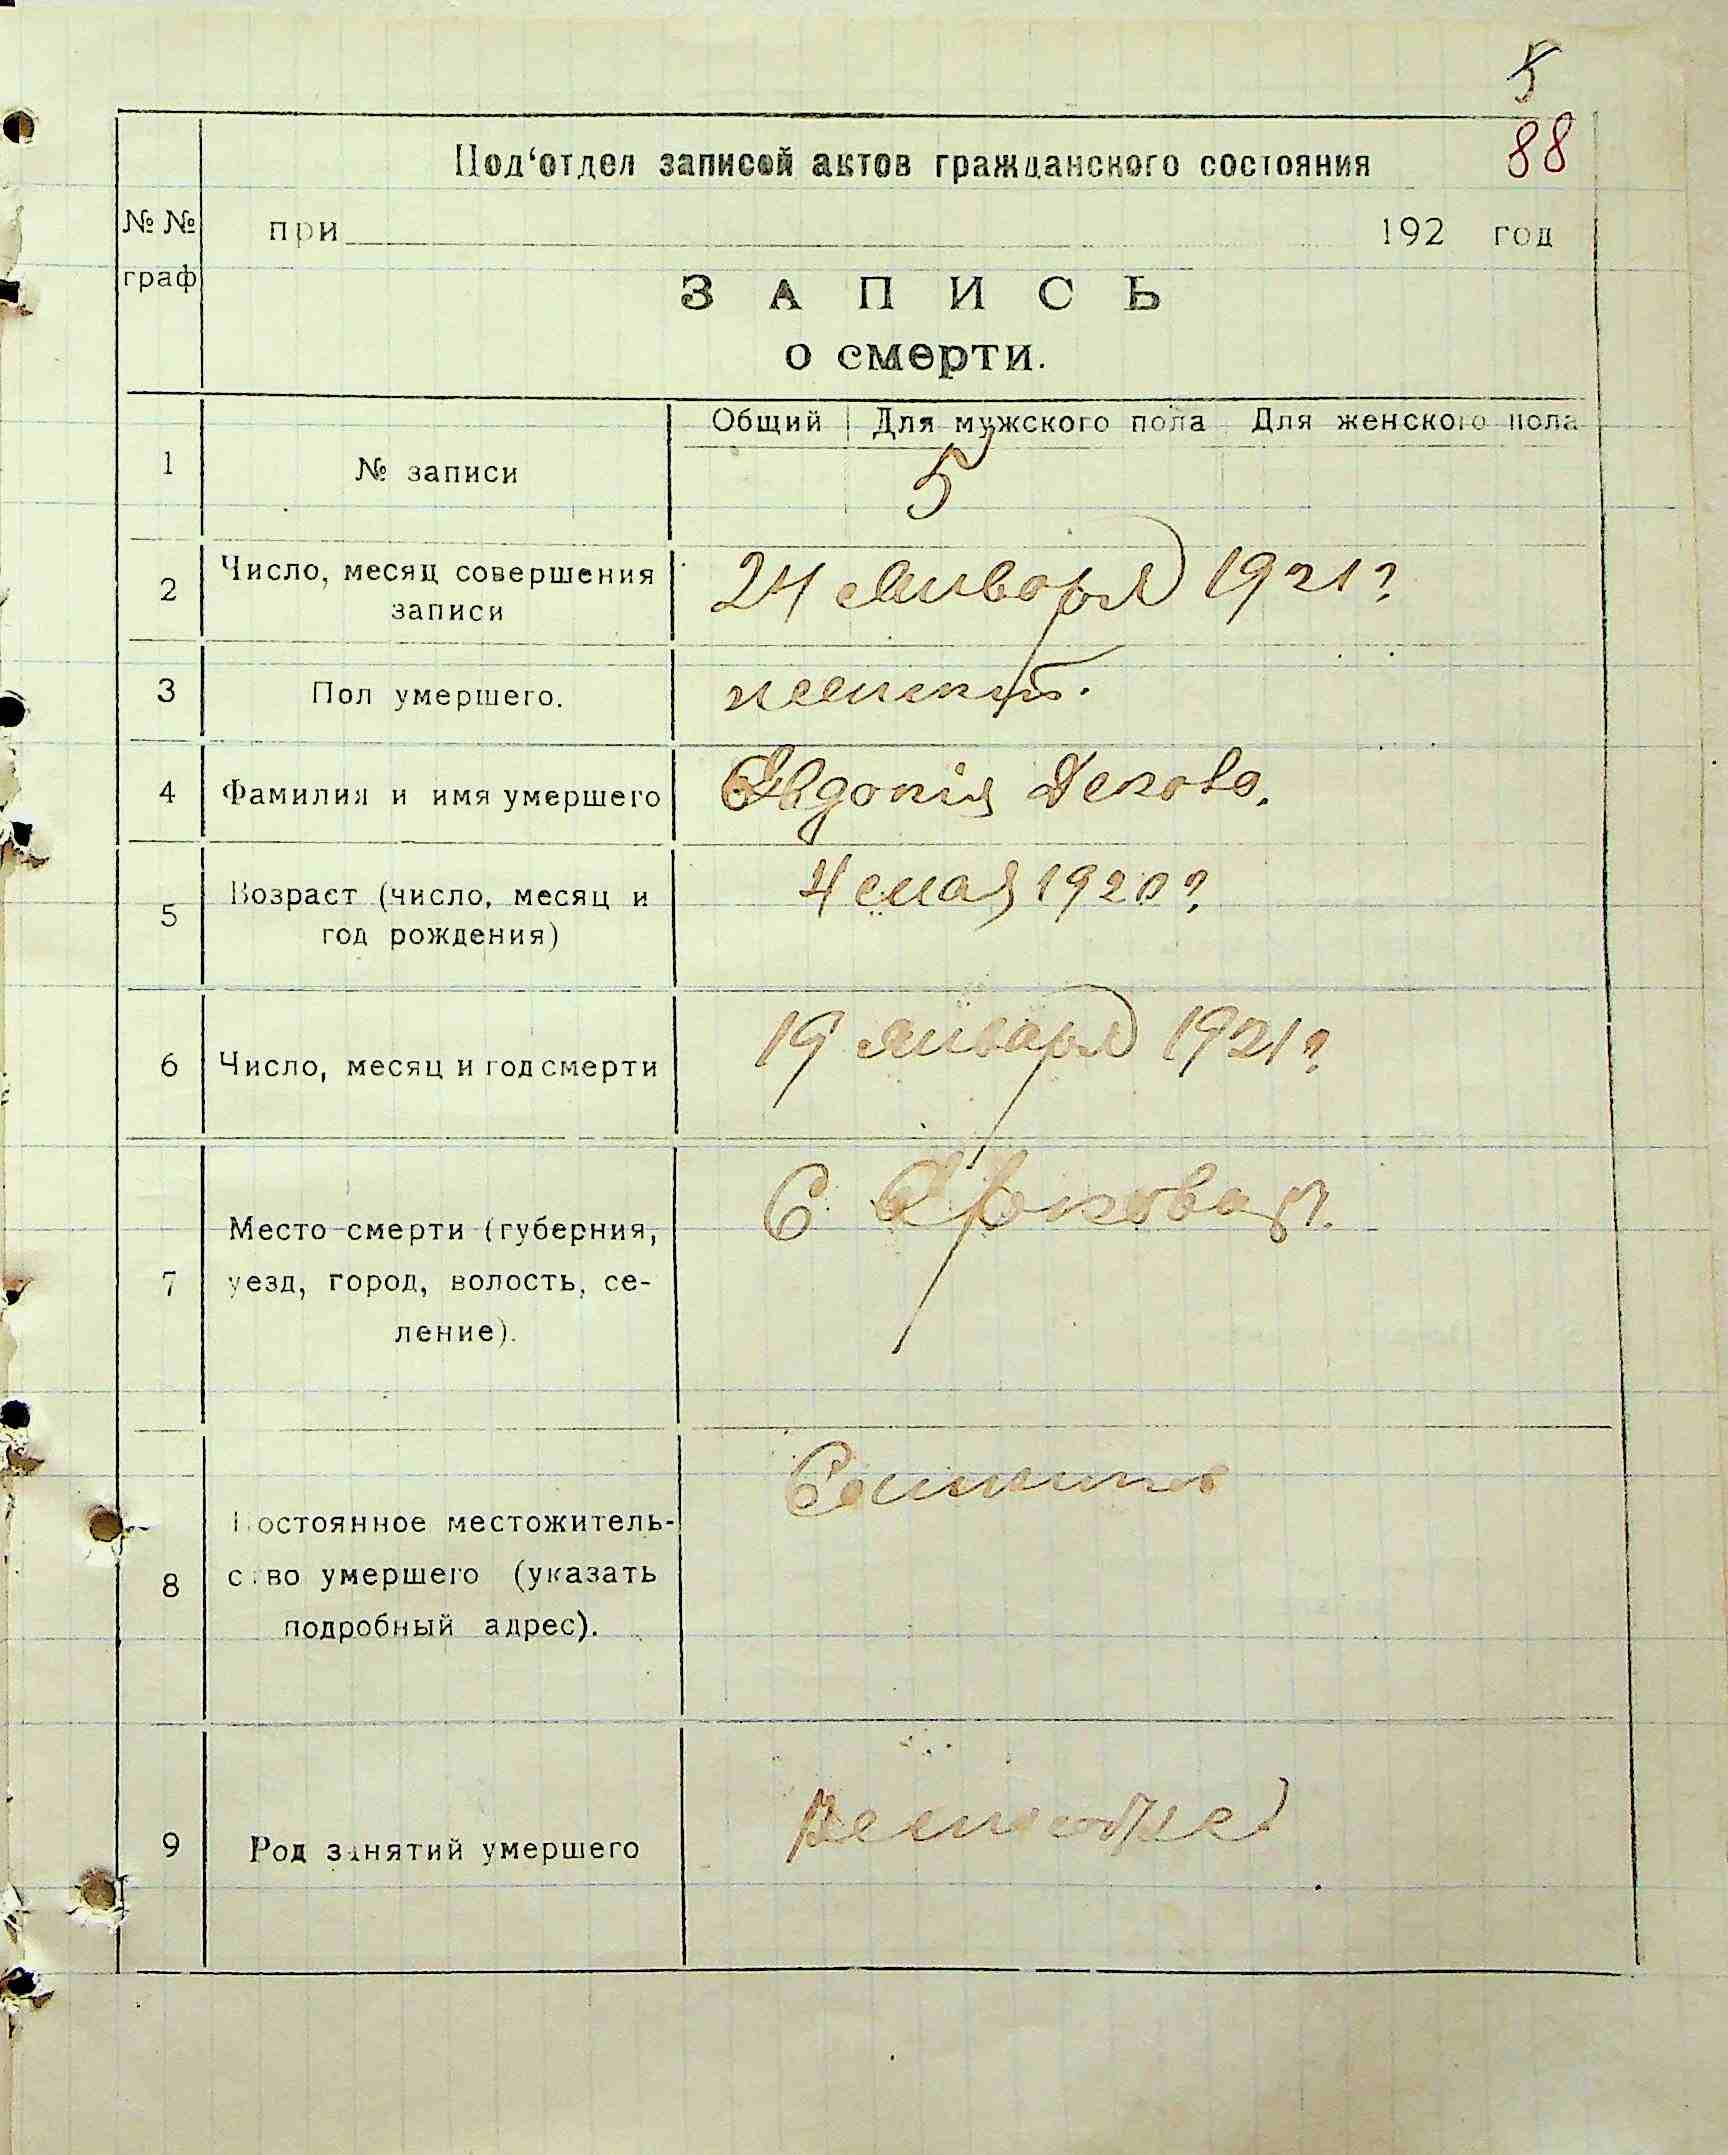 5
88
Под‘отдел записей актов гражданского состояния
№ №
граф
при 192 год
ЗАПИСЬ
о смерти.
Общий Для мужского пола Для женского пола
1 № записи 5
2 Число, месяц совершения
записи
24 января 1921 г
3 Пол умершего. женский.
4 Фамилия и имя умершего Евдокія
5 Возраст (число, месяц и
год рождения)
4 мая 1920 г
6 Число, месяц и год смерти 19 января 1921 г
7 Место смерти (губерния,
уезд, город, волость, се-
ление).
С.
8 Постоянное местожитель-
ство умершего (указать
подробный адрес).
9 Род занятий умершего